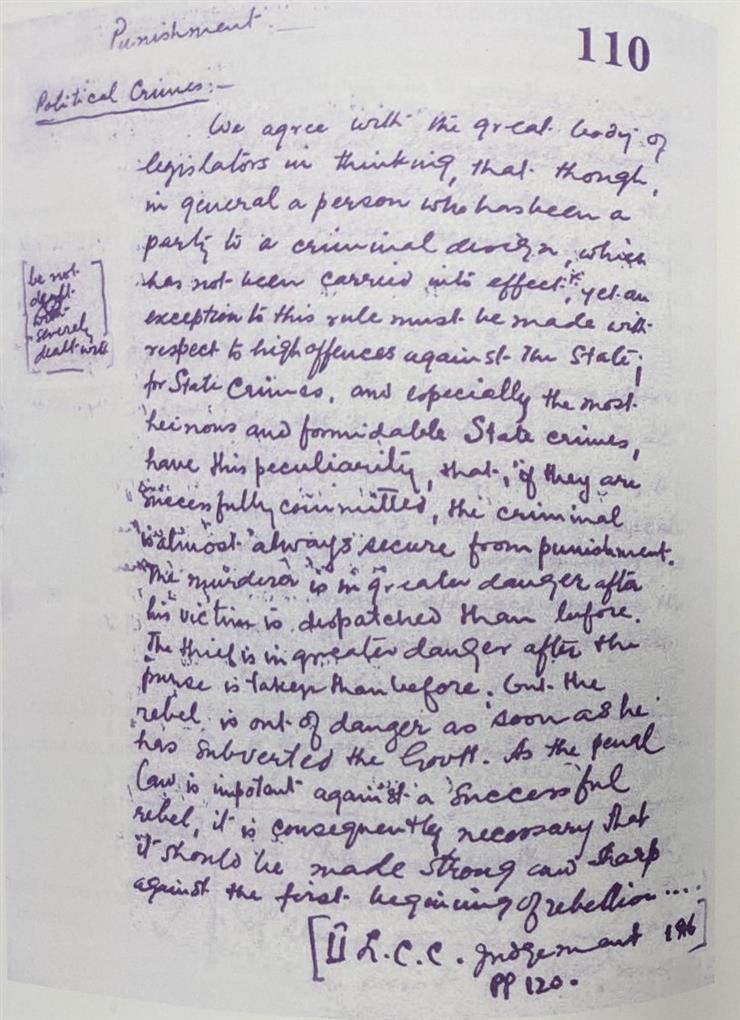 Punishment:—
110
Political Crimes:—
We agree with the great body of
legislators in thinking, that though,
in general a person who has been a
party to a criminal design, which
has not been carried into effect,* yet an
exception to this rule must be made with
respect to high offences against the State;
for State Crimes, and especially the most
heinous and formidable State crimes,
have this peculiarity, that, if they are
successfully committed, the criminal
is almost always secure from punishment.
The murderer is in greater danger after
his victim is despatched than before.
The thief is in greater danger after the
purse is taken than before. but the
rebel is out of danger as soon as he
has subverted the Govtt. As the penal
Law is impotant against a successful
rebel, it is consequently necessary that
it should be made strong and sharp
against the first begining of rebellion ....
[II L.C.C. Judgement 1906]
PP 120.
[be not
dealt
with
severely
dealt with]